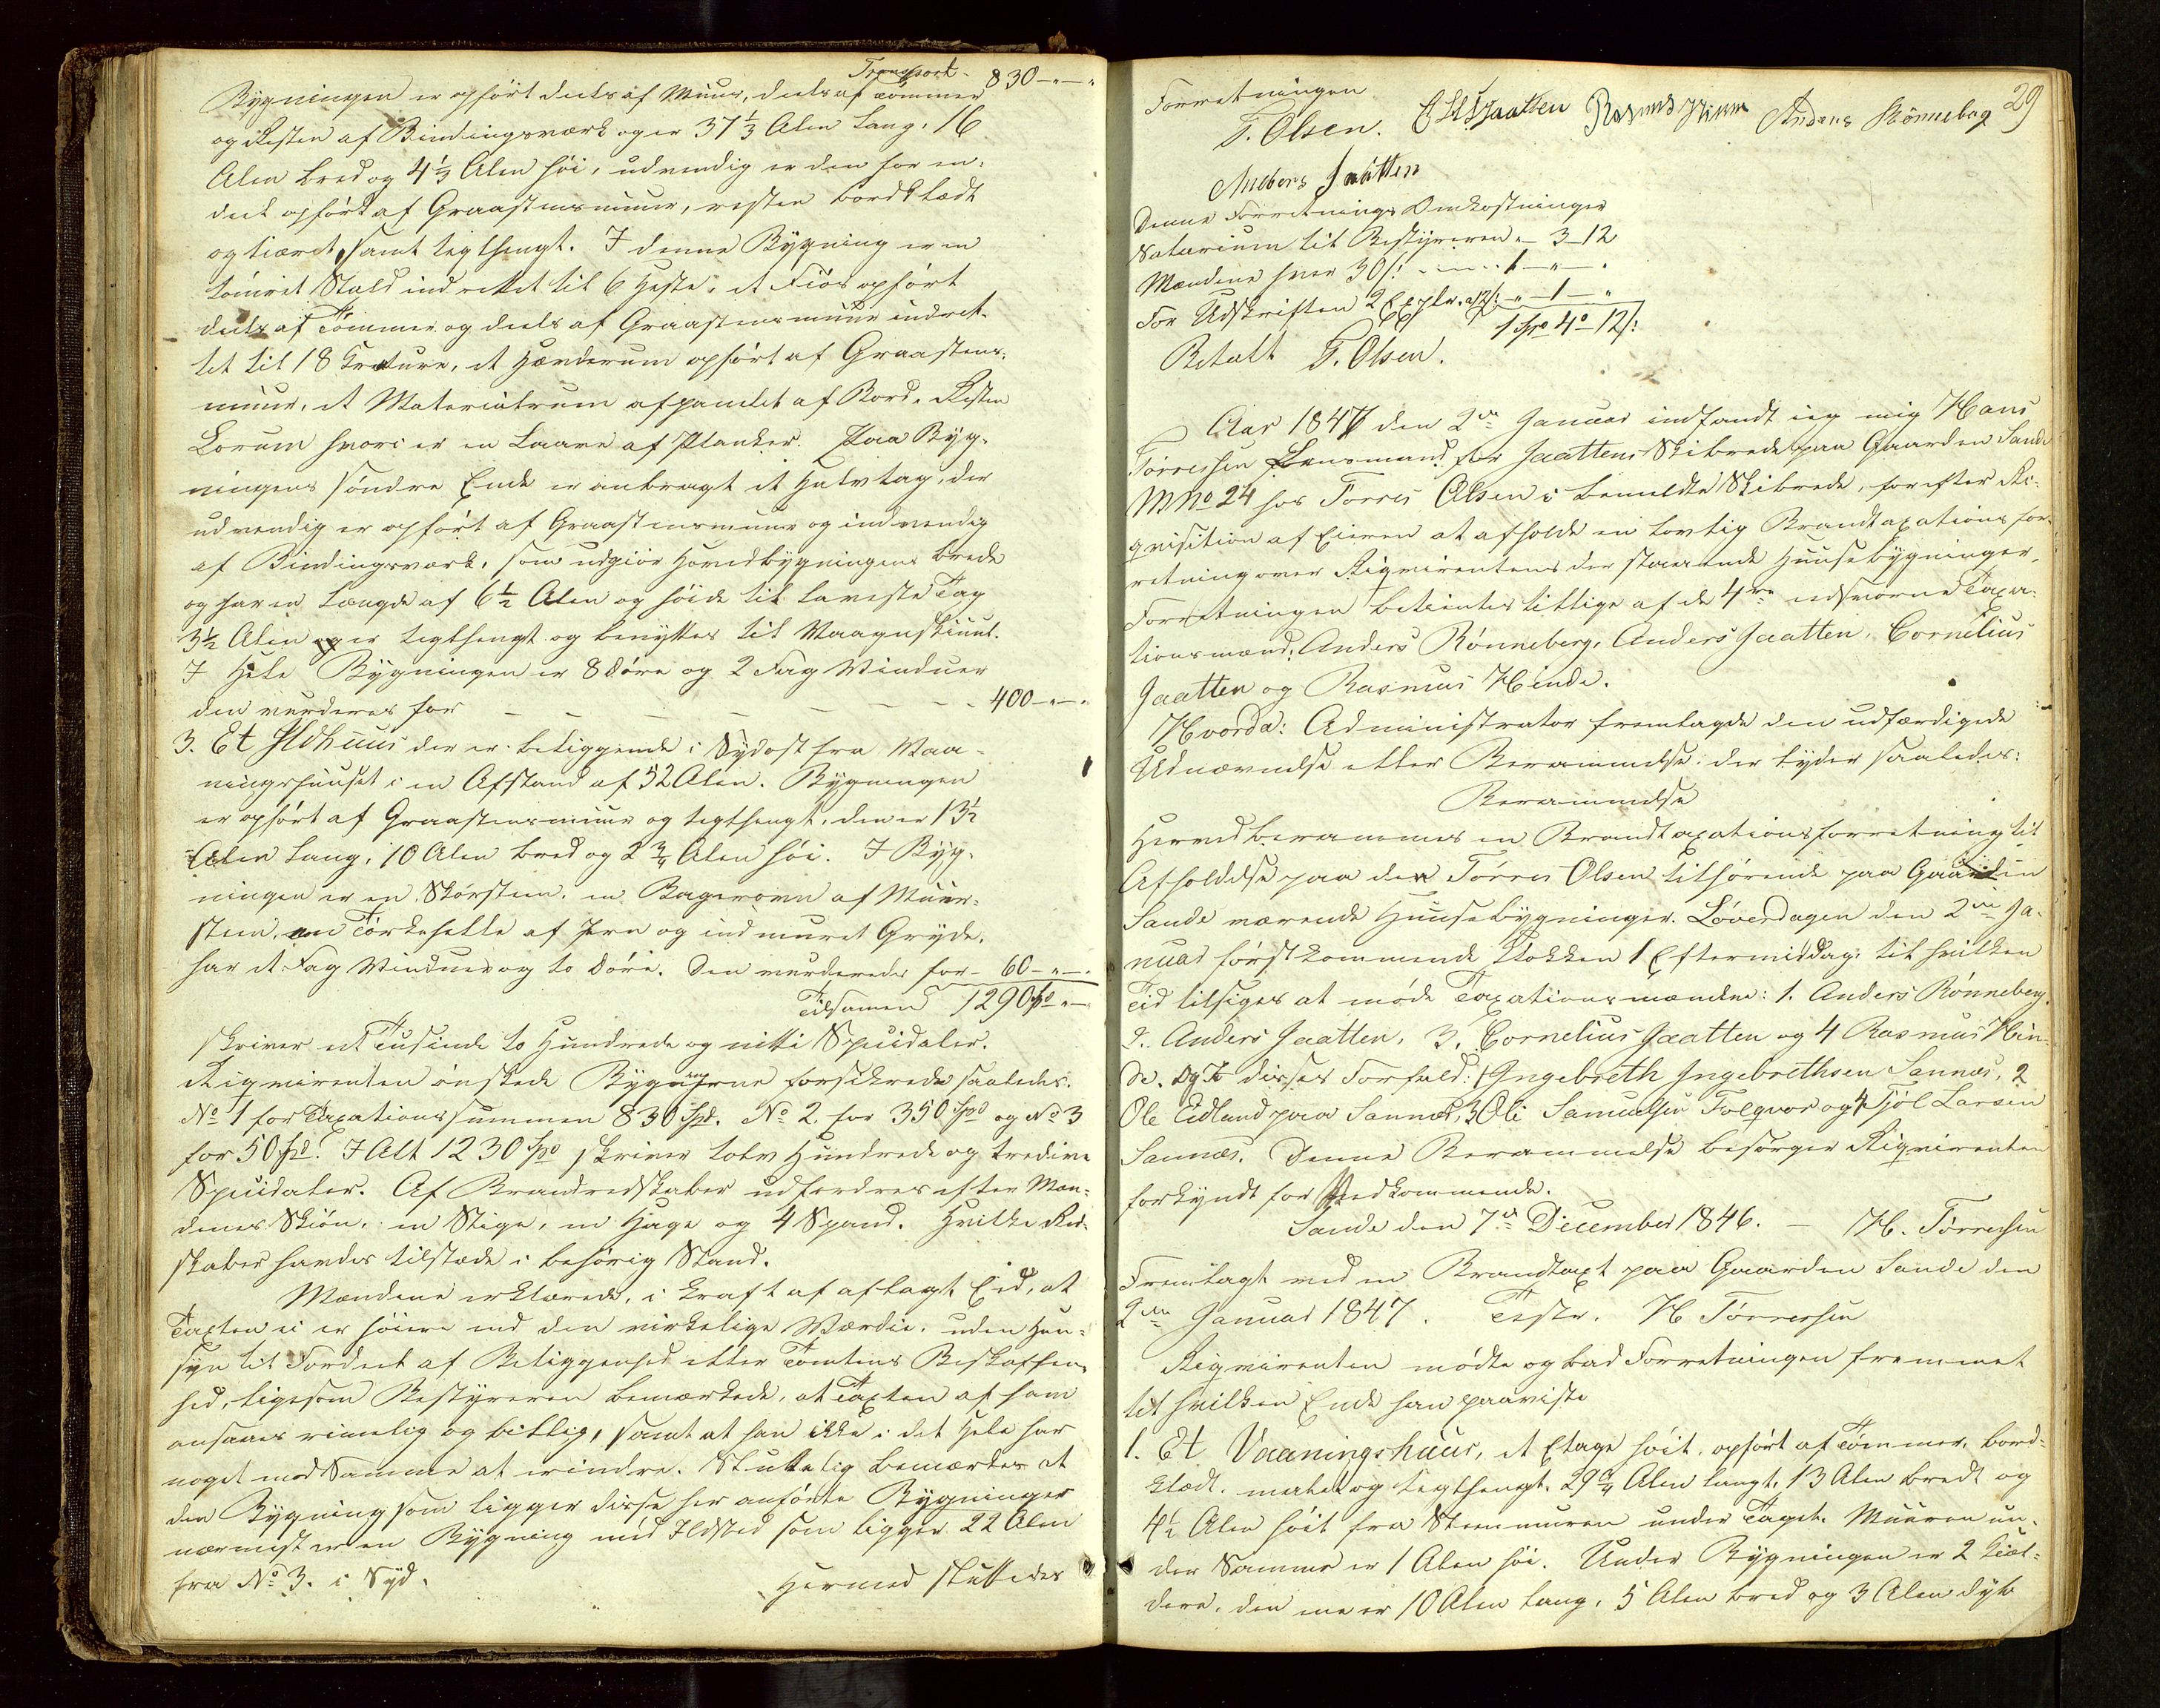 Transport 830-"-"
Bygningen er opført deels af Muur, deels af Tømmer
og Resten af Bindingsværk og er 37 1/3 Alen lang, 16
Alen bred og 4 1/3 Alen høi, udvendig er den for en-
deel opført af Graasteensmuur, resten bordklædt
og tiæret, samt teglhengt. I denne Bygning er en
tømret Stald indrettet til 6 Heste, et Fiøs opført
deels af Tømmer og deels af Graasteensmuur indret-
tet til 18 Creature, et Hønserum opført af Graasteens-
muur, et Materialrum afpanelet af Bord. Resten
Lorum hvori er en Laave af Planker. Paa Byg-
ningens søndre Ende er anbragt et Halvtag, der
udvendig er opført af Graasteensmuur og indvendig
af Bindingsværk, som udgiør Hovedbygningens Brede
og har en Længde af 6 1/2 Alen og høide til laveste Tag
3 1/2 Alen og er teglhengt og benyttes til Vaagnskiuul.
I Hele Bygningen er 8 Døre og 2 Fag Vinduer
den vurderes for - - - - - - - 400-"-"
3. Et Ildhuus der er beliggende i Sydost fra Vaa-
ningshuuset i en Afstand af 52 Alen. Bygningen
er opført af Graasteensmuur og teglhengt, den er 13 1/2
Alen lang, 10 Alen bred og 2 3/4 Alen høi. I Byg-
ningen er en Skorsteen, en Bagerovn af Muur-
steen, en Tørkehelle af Jern og indmuret Gryde,
har et Fag Vinduer og to Døre. Den vurderedes for - 60-"-"
Tilsamen 1290 Spd "-
skriver et Tusinde to Hundrede og nitti Speciedaler.
Reqvirenten ønskede Bygningerne forsikrede saaledes.
No 1 for Taxationssummen 830 Spd. No 2. for 350 Spd og No 3
for 50 Spd. I Alt 1230 Spd skriver tolv Hundrede og tredive
Speciedaler. Af Brandredskaber udfordres efter Mæn-
denes Skiøn, en Stige, en Hage og 4 Spand. Hvilke Red-
skaber havdes tilstæde i behørig Stand.
Mændene erklærede, i Kraft af aflagt Eed, at
Taxten ei er høiere end den virkelige Værdie, uden Hen-
syn til Fordeel af Beliggenhed eller Tomtens Beskaffen-
hed, ligesom Bestyreren bemærkede, at Taxten af ham
ansaaes rimelig og billig, samt at han ikke i det Hele har
noget mod Samme at erindre. Sluttelig bemærkes at
den Bygning som ligger disse her anførte Bygninger
nærmest er en Bygning med Ildsted som ligger 22 Alen
fra No 3. i Syd.
Hermed sluttedes
29
Forretningen
T. Olsen. Rasmus Hinne Anders Rönneberg
Anders Jaatten
Denne Forretnings Omkostninger
Salarium til Bestyreren - 3-12
Mændene hver 30 s! - - - 1-"-"
For Udskriften 2 Expl. a 12 s: "-1-"
1 Spd 4o 12 s:
Betalt T. Olsen.
Aar 1847 den 2den Januar indfandt ieg mig Hans
Tørresen Lensmand for Jaattens Skibrede paa Gaarden Sande
M No 24 hos Torres Olsen i bemeldte Skibrede, for efter Re-
qvisition af Eieren at afholde en lovlig Brandtaxationsfor-
retning over Reqvirentens der staaende Huusebygninger,
Forretningen betientes tillige af de 4re edsvorne Taxa-
tionsmænd: Anders Rönneberg, Anders Jaatten, Cornelius
Jaatten og Rasmus Hinde.
Hvorda: Administrator fremlagde den udfærdigede
Udnævnelse eller Berammelse; der lyder saaledes:
Berammelse
Herved berammes en Brandtaxationsforretning til
Afholdelse paa den Tørres Olsen tilhørende paa Gaarden
Sande værende Huusebygninger. Løverdagen den 2den Ja-
nuar førstkommende Klokken 1 Eftermiddag, til hvilken
Tid tilsiges at møde Taxationsmændene: 1. Anders Rönneberg.
2. Anders Jaatten, 3. Cornelius Jaatten og 4 Rasmus Hin-
de. og disses Forfald: 1 Ingebreth Ingebrethsen Sannæs, 2
Ole Eidland paa Sannæs, 3 Ole Samuelsen Folqvor og 4 Tjøl Larsen
Sannæs. Denne Berammelse besørger Reqvirenten
forkyndt for Vedkommende.
Sande den 7de December 1846. - H. Tørresen
Fremlagt ved en Brandtaxt paa Gaarden Sande den
2den Januar 1847. Testr. H Tørresen
Reqvirenten mødte og bad Forretningen fremmet
til hvilken Ende han paaviste
1. Et Vaaningshuus, et Etage høit, opført af Tømmer, bord-
klædt, malet og teglhengt. 29 3/4 Alen langt, 13 Alen bredt og
4 1/2 Alen høit fra Steenmuren under Taget. Muuren un-
der Samme er 1 Alen høi. Under Bygningen er 2 Kiæl-
dere, den ene er 10 Alen lang, 5 Alen bred og 3 Alen dyb